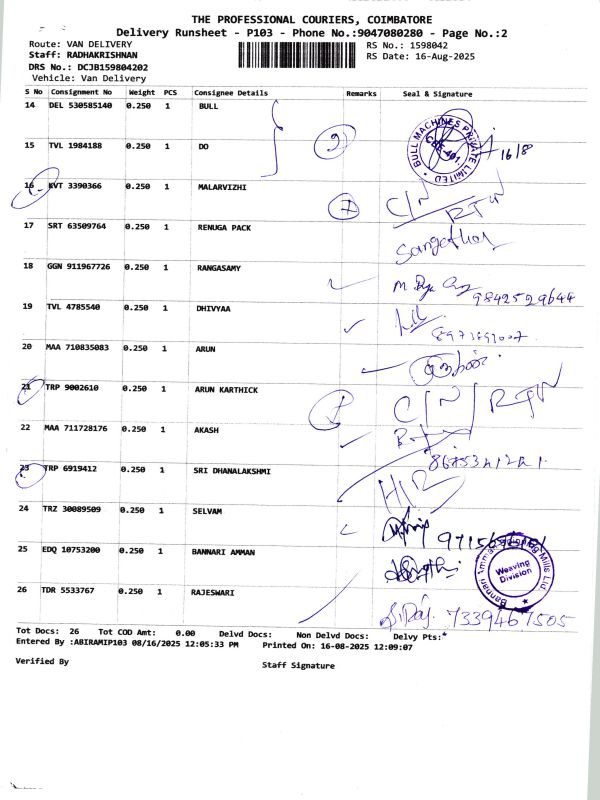 THE PROFESSIONAL COURIERS, COIMBATORE
Delivery Runsheet - P103 - Phone No.:9047080280 - Page No.:2
Route: VAN DELIVERY RS No.: 1598042
Staff: RADHAKRISHNAN RS Date: 16-Aug-2025
DRS No.: DCJB159804202
Vehicle: Van Delivery
S No Consignment No Weight PCS Consignee Details Remarks Seal & Signature
14 DEL 530585140 0.250 1 BULL
BULL MACHINES PRIVATE LIMITED
CBE-401.
15 TVL 1984188 0.250 1 DO 16/8
16 KVT 3390366 0.250 1 MALARVIZHI 7 C/N RTN
17 SRT 63509764 0.250 1 RENUGA PACK Sangetha
18 GGN 911967726 0.250 1 RANGASAMY 9842529644
19 TVL 4785540 0.250 1 DHIVYAA
20 MAA 710835083 0.250 1 ARUN
21 TRP 9002610 0.250 1 ARUN KARTHICK C/N RTN
22 MAA 711728176 0.250 1 AKASH
23 TRP 6919412 0.250 1 SRI DHANALAKSHMI
24 TRZ 30089509 0.250 1 SELVAM
25 EDQ 10753200 0.250 1 BANNARI AMMAN
Bannari Amman Spinning Mills Ltd.
Weaving
Division
26 TDR 5533767 0.250 1 RAJESWARI 7339467505
Tot Docs: 26 Tot COD Amt: 0.00 Delvd Docs: Non Delvd Docs: Delvy Pts:*
Entered By :ABIRAMIP103 08/16/2025 12:05:33 PM Printed On: 16-08-2025 12:09:07
Verified By Staff Signature